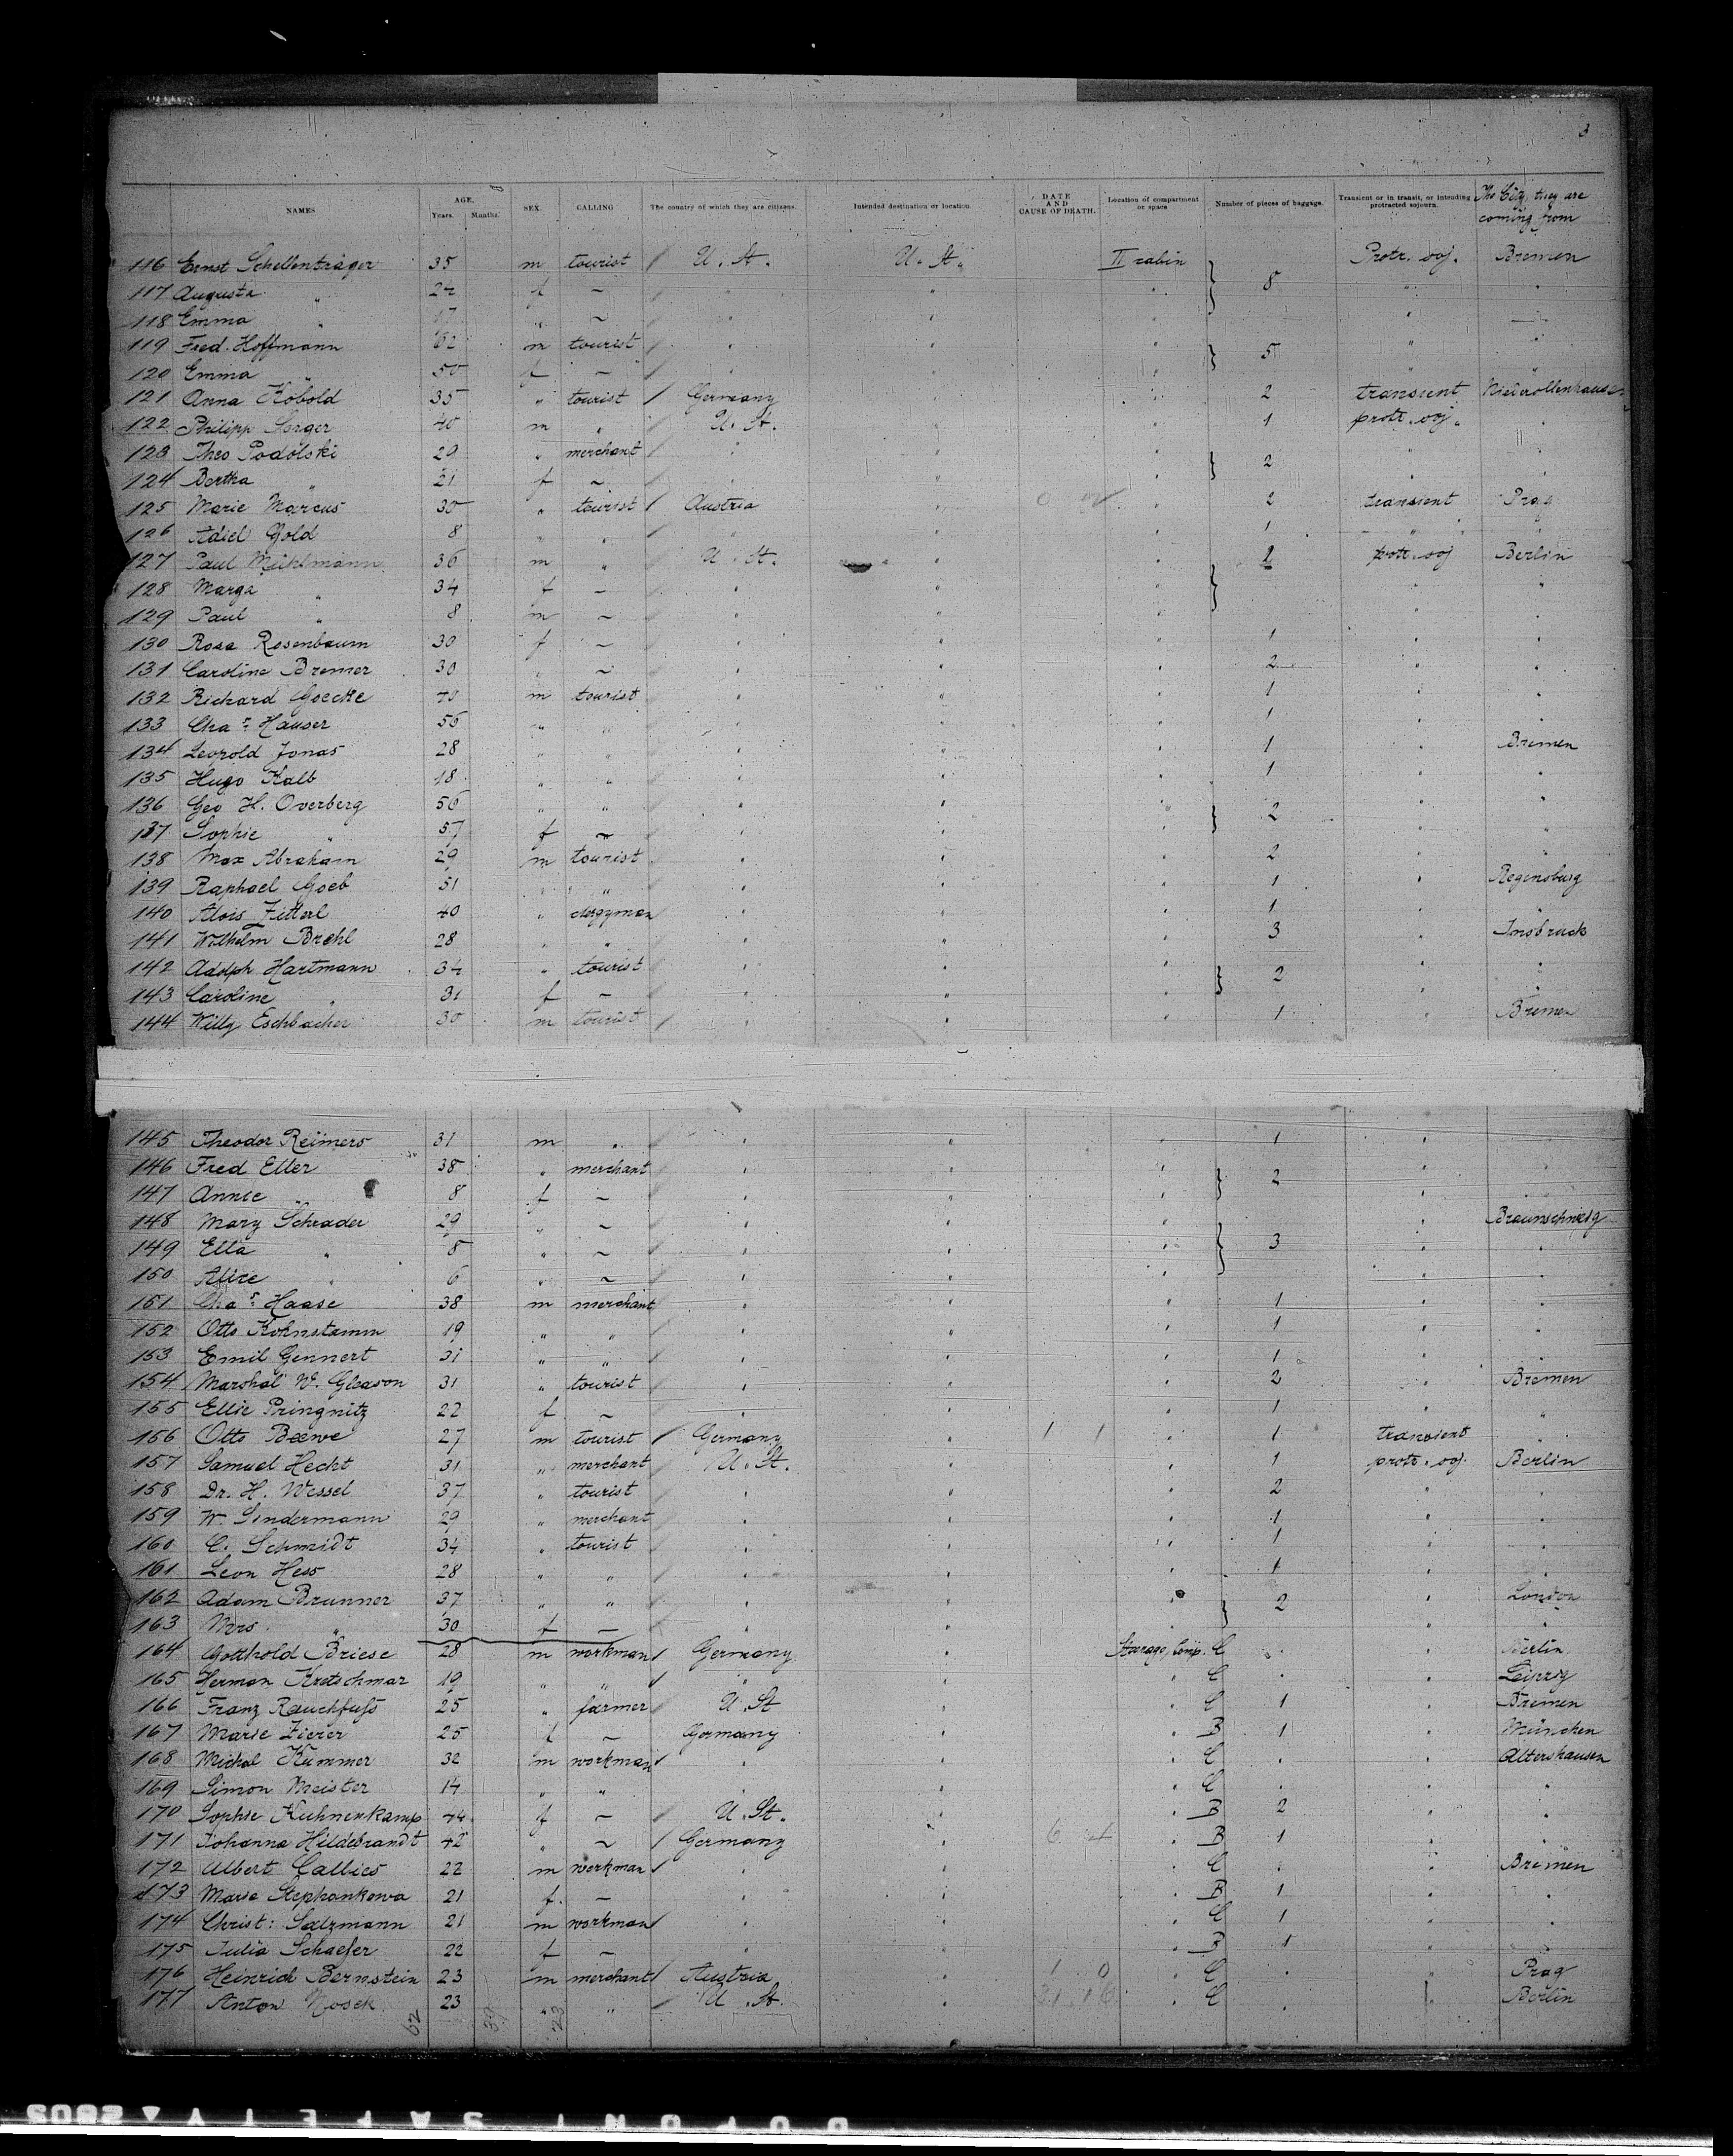 3
NAMES AGE, Years. Months. SEX. CALLING The country of which they are citizens. Intended destination or location. DATE AND CAUSE OF DEATH. Location of compartment or space Number of pieces of baggage. Transient or in transit, or intending protracted sojourn. The City, they are coming from
116 Ernst Schellenträger 35 m tourist U. St. U. St. II cabin Protr. soj. Bremen
117 Augusta " 24 f ~ " " " 8 " "
118 Emma " 17 " ~ " " " "
119 Fred. Hoffmann 62 m tourist " " " 5 " "
120 Emma " 50 f ~ " " " " "
121 Anna Kobold 35 " tourist Germany " " 2 transient
122 Philipp Sorger 40 m " U. St. " " 1 protr. soj. "
123 Theo Podolski 29 " merchant " " " 2 " "
124 Bertha " 21 f ~ " " " " "
125 Marie Marcus 30 " tourist Austria " " 2 transient Prag
126 Adiel Gold 8 " " " " " 1 " "
127 Paul Mühlmann 36 m " U. St. " " 2 protr. soj Berlin
128 Marga " 34 f ~ " " " " "
129 Paul " 8 m ~ " " " " "
130 Rosa Rosenbaum 30 f ~ " " " 1 " "
131 Caroline Bremer 30 " ~ " " " 2 " "
132 Richard Goecke 40 m tourist " " " 1 " "
133 Chas. Hauser 56 " " " " " 1 " "
134 Leopold Jonas 28 " " " " " 1 " Bremen
135 Hugo Kalb 18 " " " " " 1 " "
136 Geo H. Overberg 56 " " " " " 2 " "
137 Sophie " 57 f ~ " " " " "
138 Max Abraham 29 m tourist " " " 2 " "
139 Raphael Goeb 51 " " " " " 1 " Regensburg
140 Alois Zitterl 40 " clergyman " " " 1 " "
141 Wilhelm Brehl 28 " " " " " 3 " Insbruck
142 Adolph Hartmann 34 " tourist " " " 2 " "
143 Caroline " 31 f ~ " " " " "
144 Willy Eschbacher 30 m tourist " " " 1 " Bremen
145 Theodor Reimers 31 m " " " " 1 " "
146 Fred Etter 38 " merchant " " " 2 " "
147 Annie " 8 f ~ " " " " "
148 Mary Schrader 29 " ~ " " " " Braunschweig
149 Ella " 8 " ~ " " " 3 " "
150 Alice " 6 " ~ " " " " "
151 Chas. Haase 38 m merchant " " " 1 " "
152 Otto Kohnstamm 19 " " " " " 1 " "
153 Emil Gennert 31 " " " " " 1 " "
154 Marshal W. Gleason 31 " tourist " " " 2 " Bremen
155 Ellie Pringnitz 22 f ~ " " " 1 " "
156 Otto 27 m tourist Germany " 1 1 " 1 transient "
157 Samuel Hecht 31 " merchant U. St. " " 1 protr. soj. Berlin
158 Dr. H. Wessel 37 " tourist " " " 2 " "
159 W. Sindermann 29 " merchant " " " 1 " "
160 C. Schmidt 34 " tourist " " " 1 " "
161 Leon Hess 28 " " " " " 1 " "
162 Adam Brunner 37 " " " " " 2 " London
163 Mrs. " 30 f ~ " " " " "
164 Gotthold Briese 28 m workman Germany " Steerage Comp. C " " Berlin
165 Herman Kretschmar 19 " " " " " C " " Leipzig
166 Franz Rauchfuß 25 " farmer U. St " " C 1 " Bremen
167 Marie Zierer 25 f ~ Germany " " B 1 " München
168 Michal Kummer 32 m workman " " " C " " Altershausen
169 Simon Meister 14 " " " " " C " " "
170 Sophie Kuhnenkamp 74 f ~ U. St. " " B 2 " "
171 Johanna Hildebrandt 42 " ~ Germany " " B 1 " "
172 Albert Callies 22 m workman " " " C " " Bremen
173 Marie Stephankowa 21 f. ~ " " " B 1 " "
174 Christ: Salzmann 21 m workman " " " C 1 " "
175 Julia Schaefer 22 f ~ " " " B 1 " "
176 Heinrich Bernstein 23 m merchant Austria " 1 0 " C " " Prag
177 Anton Nosek 23 " " U. St. " " C " " Berlin
62 39 23
DUPONT SAFETY